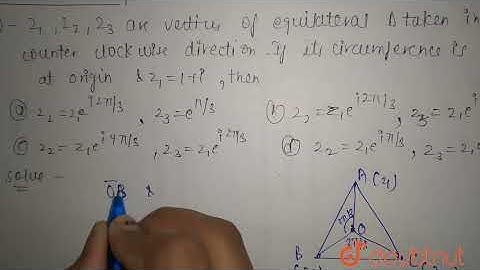 - Z₁, Z₂, Z₃ are vertius of equilateral Δ taken in
counter clockwise direction. If its circumference is
at origin & z₁ = 1+i, then
ⓐ z₂ = z₁e^{i2π/3}, z₃ = e^{iπ/3}
z₂ = z₁e^{i2π/3}, z₃ = z₁e^{i
ⓒ z₂ = z₁e^{i4π/3}, z₃ = z₁e^{i2π/3}
ⓓ z₂ = z₁e^{i, z₃ = z₁
solve -
OB &
A (z₁)
O
B
doubtnut